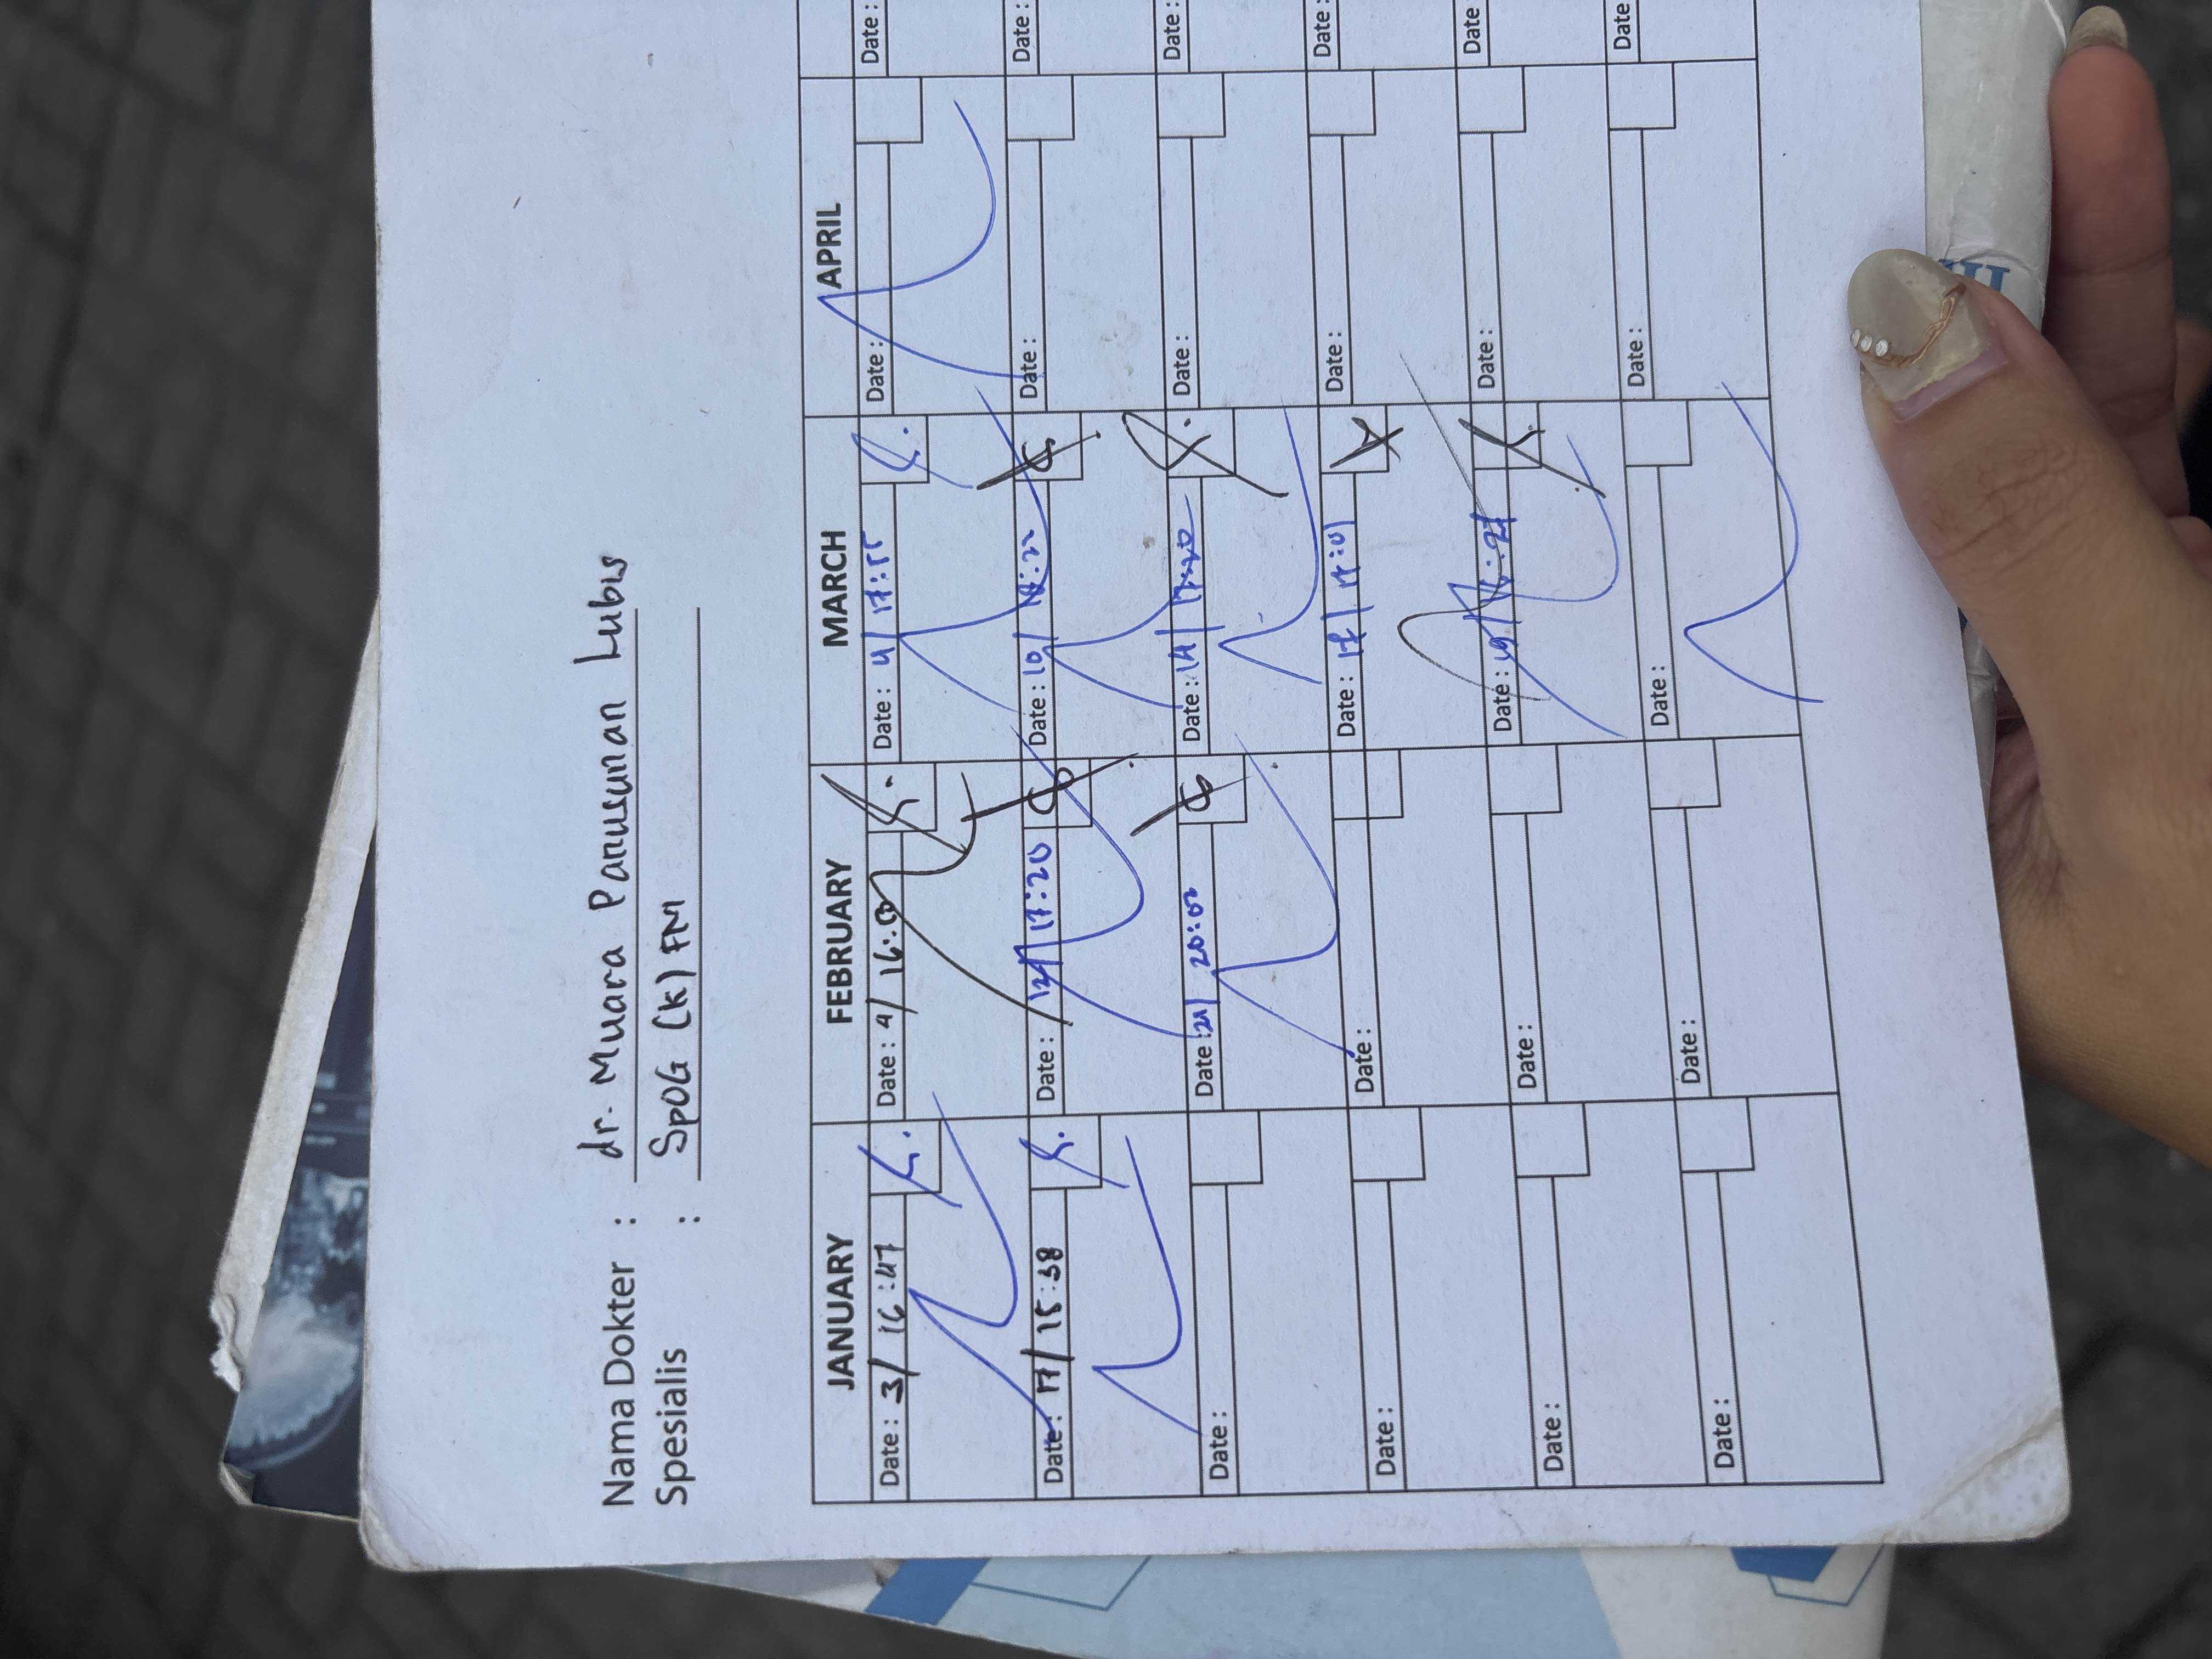 Nama Dokter : dr. Muara Panusunan Lubis
Spesialis : SpOG (K) FM
JANUARY FEBRUARY MARCH APRIL
Date : 3/ 16:47 Date : 4/ 16:00 Date : 4/ 17:55 Date : Date :
Date : 17/ 15:38 Date : 12/ 17:20 Date : 10/ 18:22 Date : Date :
Date : Date : 21/ 20:02 Date : 14/ 17:20 Date : Date :
Date : Date : Date : 17/ 17:01 Date : Date :
Date : Date : Date : 19/ 16:21 Date : Date
Date : Date : Date : Date : Date